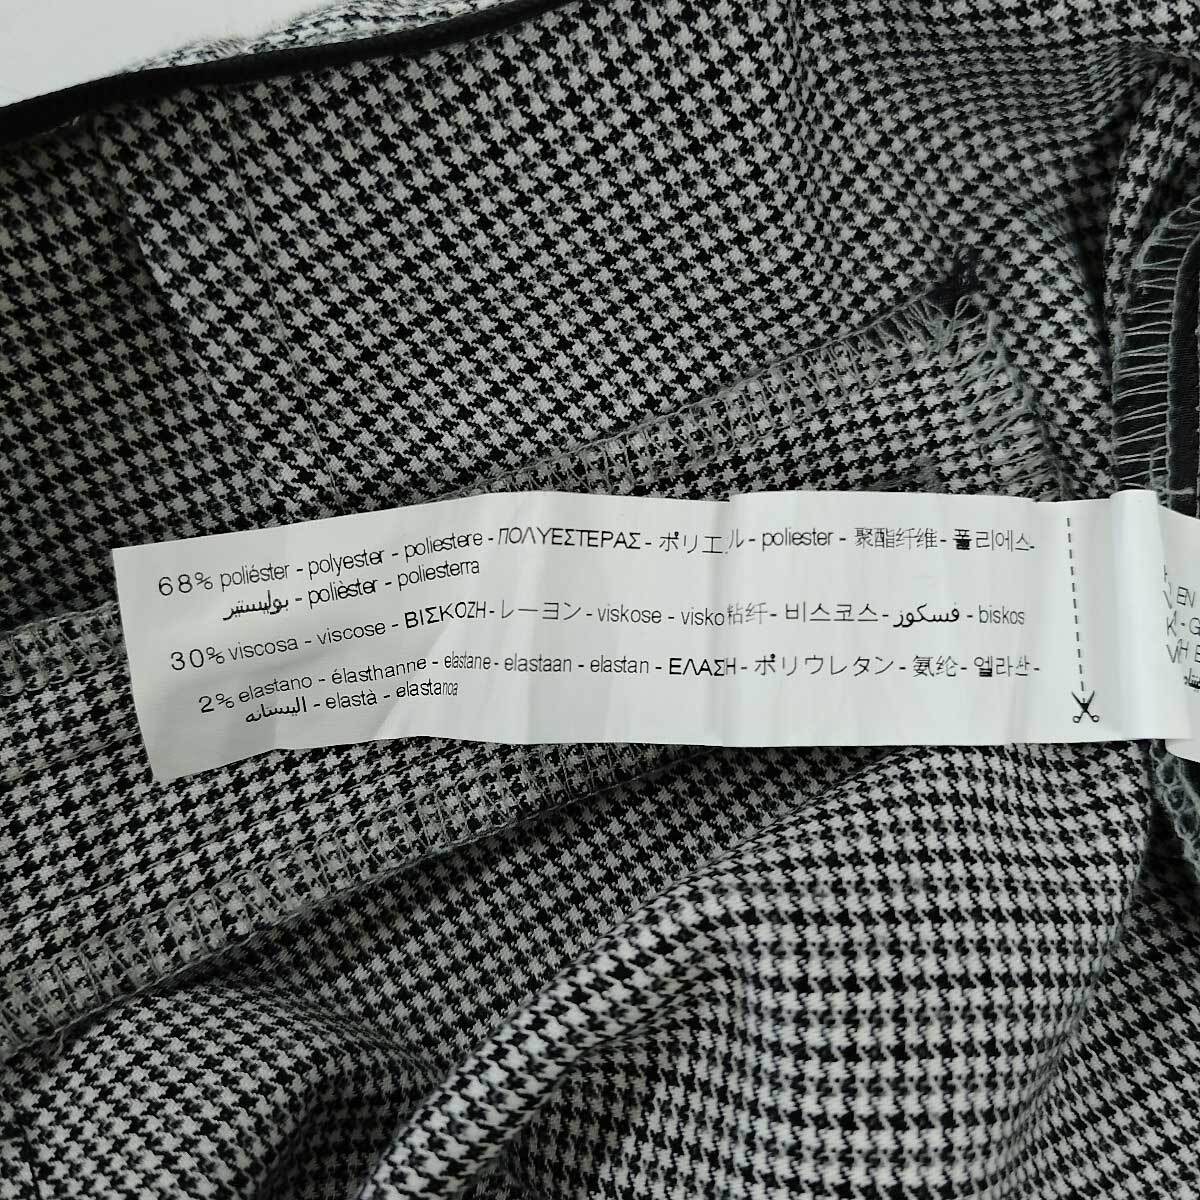 68% poliéster - polyester - poliestere - ΠΟΛΥΕΣΤΕΡΑΣ - ポリエル - poliester - 聚酯纤维 - 폴리에스-
بوليستير - polièster - poliesterra
30% viscosa - viscose - ΒΙΣΚΟΖΗ - レーヨン - viskose - visko 粘纤 - 비스코스 - فسكوز - biskos
2% elastano - élasthanne - elastane - elastaan - elastan - ΕΛΑΣΗ - ポリウレタン - 氨纶 - 엘라산 -
اليستانه - elastà - elastanoa
EN
- G